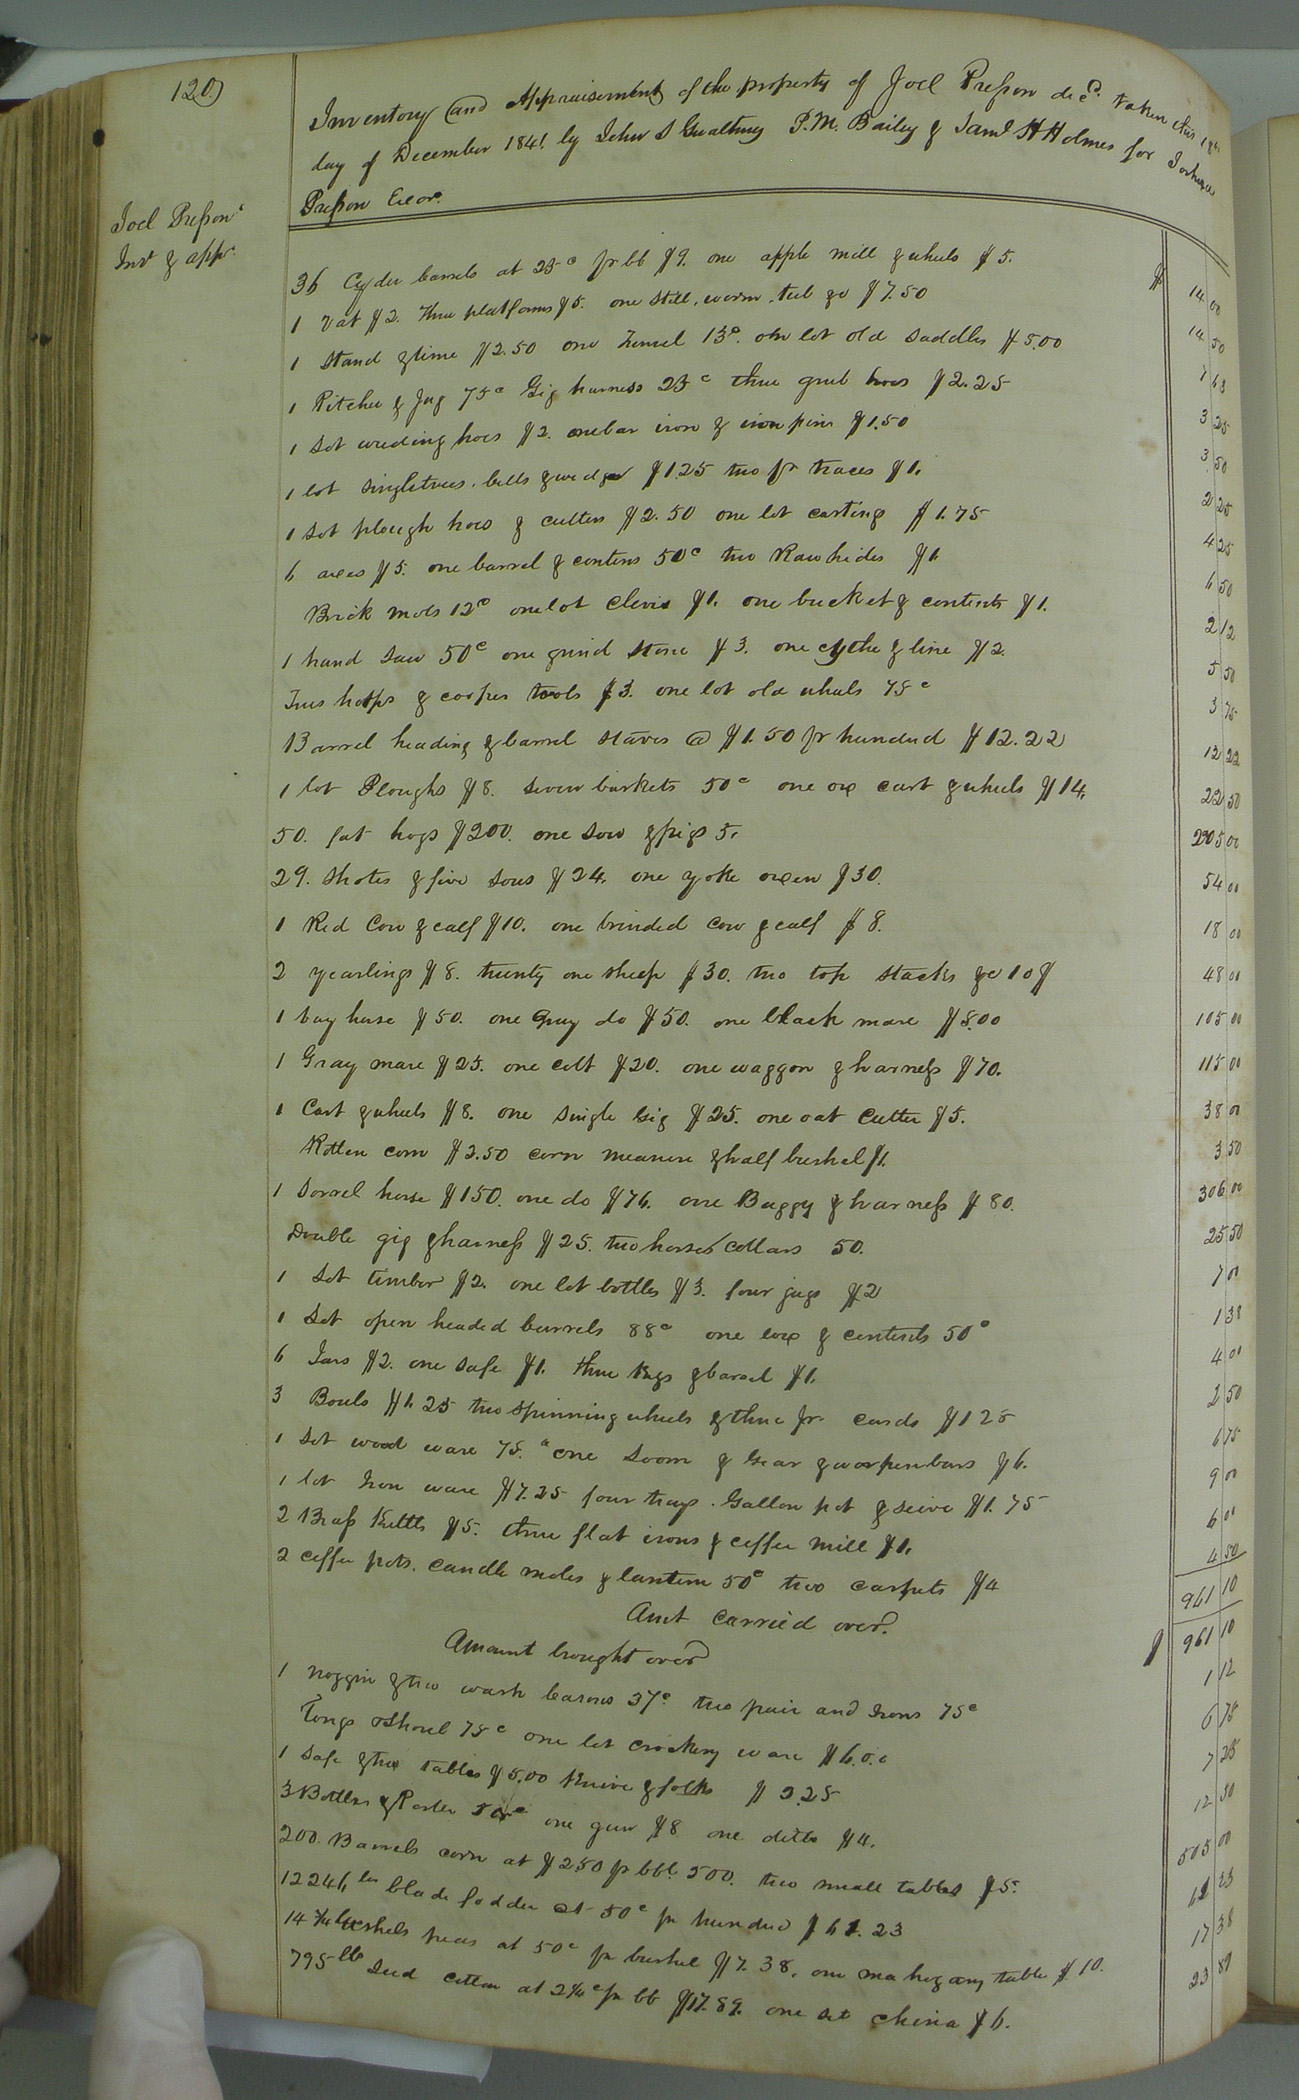 120
Inventory and Appraisement of the property of Joel Presson decd. taken this 18th
day of December 1841 by John S Gwaltney P.M. Bailey & Saml H Holmes for Joshua
Presson Exor.
Joel Presson's
Invt & appr.
36 Cyder barrels at 25c pr bb $9. one apple mill & wheels $5. $ 14 00
1 Vat $2. three platforms $5. one still, worm, tub &c $7.50 14 50
1 Stand & lime $2.50 one Funnel 13c. one lot old saddles $5.00 7 63
1 Pitcher & Jug 75c Gig harness 25c three grub hoes $2.25 3 25
1 Sot weeding hoes $2. one bar iron & iron pins $1.50 3 50
1 lot singletrees, bells & wedges $1.25 two pr traces $1. 2 25
1 Sot plough hoes & cutters $2.50 one lot castings $1.75 4 25
6 axes $5. one barrel & contens 50c two Rawhides $1. 6 50
Brick mols 12c one lot clevis $1. one bucket & contents $1. 2 12
1 hand saw 50c one grind stone $3. one cythe & line $2. 5 50
Trus hoops & cooper tools $3. one lot old wheels 75c 3 75
Barrel heading & barrel staves @ $1.50 pr hundred $12.22 12 22
1 lot Ploughs $8. seven baskets 50c one ox cart & wheels $14. 22 50
50. fat hogs $200. one sow & pigs 5. 205 00
29. Shotes & five sows $24. one yoke oxen $30. 54 00
1 Red Cow & calf $10. one brinded cow & calf $8. 18 00
2 yearlings $8. twenty one sheep $30. two top stacks &c 10$ 48 00
1 bay horse $50. one Gray do $50. one black mare $5.00 105 00
1 Gray mare $25. one colt $20. one waggon & harness $70. 115 00
1 Cart & wheels $8. one single Gig $25. one oat Cutter $5. 38 00
Rotten corn $2.50 corn measure & half bushel $1. 3 50
1 Sorrel horse $150. one do $76. one Buggy & harness $80. 306 00
Double gig & harness $25. two horses collars 50. 25 50
1 Sot timber $2. one lot bottles $3. four jugs $2 7 00
1 Sot open headed barrels 88c one box & contents 50c 1 38
6 Jars $2. one safe $1. three Kegs & barrel $1. 4 00
3 Bowls $1.25 two spinning wheels & three pr cards $1 25 2 50
1 Sot wood ware 75.c one Loom & Gear & warpen bars $6. 6 75
1 lot Iron ware $7.25 four trays. Gallon pot & seive $1.75 9 00
2 Brass Kettls $5. three flat irons & coffee mill $1. 6 00
2 coffee pots. candle moles & lantern 50c two carpets $4 4 50
Amt carried over. 961 10
Amount brought over $ 961 10
1 noggin & two wash basons 37c. two pair and Irons 75c 1 12
Tongs & Shovel 75c one lot crockery ware $6.00 6 75
1 Safe & two tables $5.00 Knive & folks $2.25 7 25
3 Bottles & Porter 50c one gun $8 one ditto $4. 12 50
200. Barrels corn at $2.50 pr bbl. 500. two small tables $5. 505 00
12246 lbs blade fodder at 50c pr hundred $61.23 61 23
14 3/4 bushels peas at 50c pr bushel $7.38. one mahogany table $10. 17 38
795 lbs Seed cotton at 2 1/4c pr bb $17.89. one set china $6. 23 89